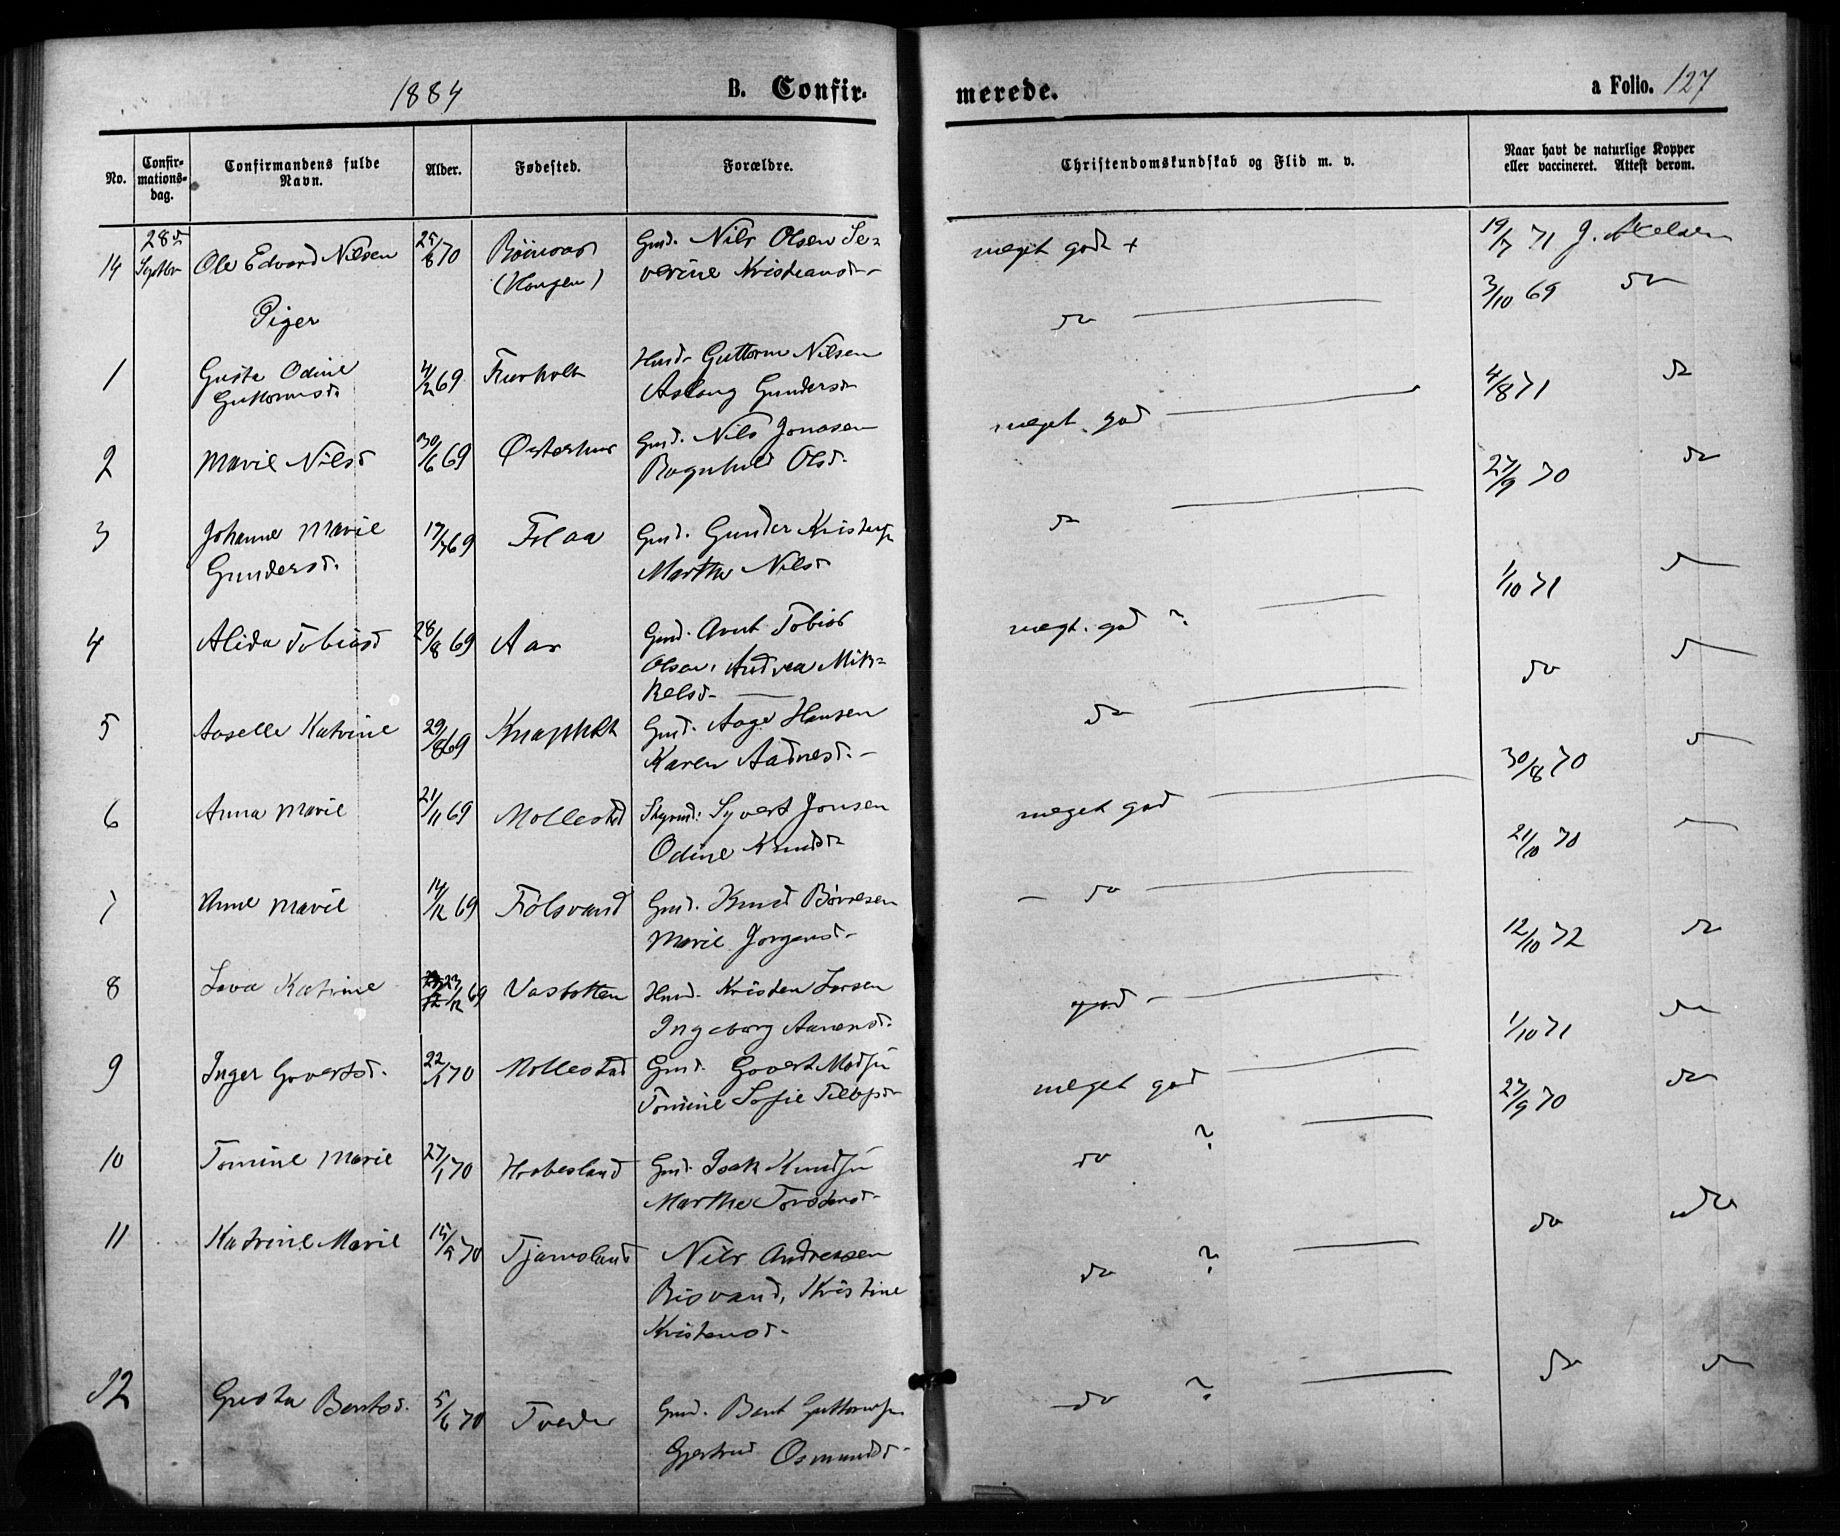 1884 B. Confir- merede. a Folio. 127
No. Confir-mations-dag. Confirmandens fulde Navn. Alder. Fødested. Forældre. Christendomskundskab og Flid m. v. Naar havt de naturlige Kopper eller vaccineret. Attest derom.
14 28de Septbr Ole Edvard Nilsen 25/8 70 (Haugen) Gmd. Nils Olsen Se- meget godt + 19/7 71 J. Axelsen
verine Kristiansd.
Piger do 3/10 69 do
1 Gusta Odine 4/2 69 Husm. Guttorm Nilsen
Guttormsd. Aslaug Gundersd. 4/8 71 do
2 Marie Nilsd 30/6 69 Østerhus Gmd. Nils Jonasen meget god
Ragnhild Olsd. 27/9 70 do
3 Johanne Marie 17/7 69 Gmd. Gunder Kristensn do
Gundersd. Marthe Nilsd 1/10 71 do
4 Alida Tobiasd 28/8 69 Aas Gmd. Arnt Tobias meget god ?
Olsen, Andrea Mik-
kelsd. do do
5 Aaselle Katrine 29/8 69 Knapholt Gmd. Aage Hansen do
Karen Aadnesd. 30/8 70 do
6 Anna Marie 21/11 69 Mollestad Sigvert Jonsen meget god
Odine Knudsd 21/10 70
7 Anne Marie 14/12 69 Følsvand Gmd. Knud Børresen do
Marie Jørgensd. 12/10 72 do
8 Katrine 23/12 69 Vasbotten Husm. Kristen Larsen god
Ingeborg Aanensd. 1/10 71 do
9 Inger Govertsd. 22/1 70 Mollestad Gmd. Govert Madsn meget god
Tomine Sofie 27/9 70 do
10 Tomine Marie 27/1 70 Hæbesland Gmd. Isak Knudsn do ?
Marthe Torstensd. do do
11 Katrine Marie 15/5 70 Tjomsland Nils Andresen do ?
Risvand, Kristine
Kristensd.
12 Gusta Bentsd. 5/6 70 Tveide Gmd. Bent Guttormsn do ? do do
Gjertrud Osmundsd.